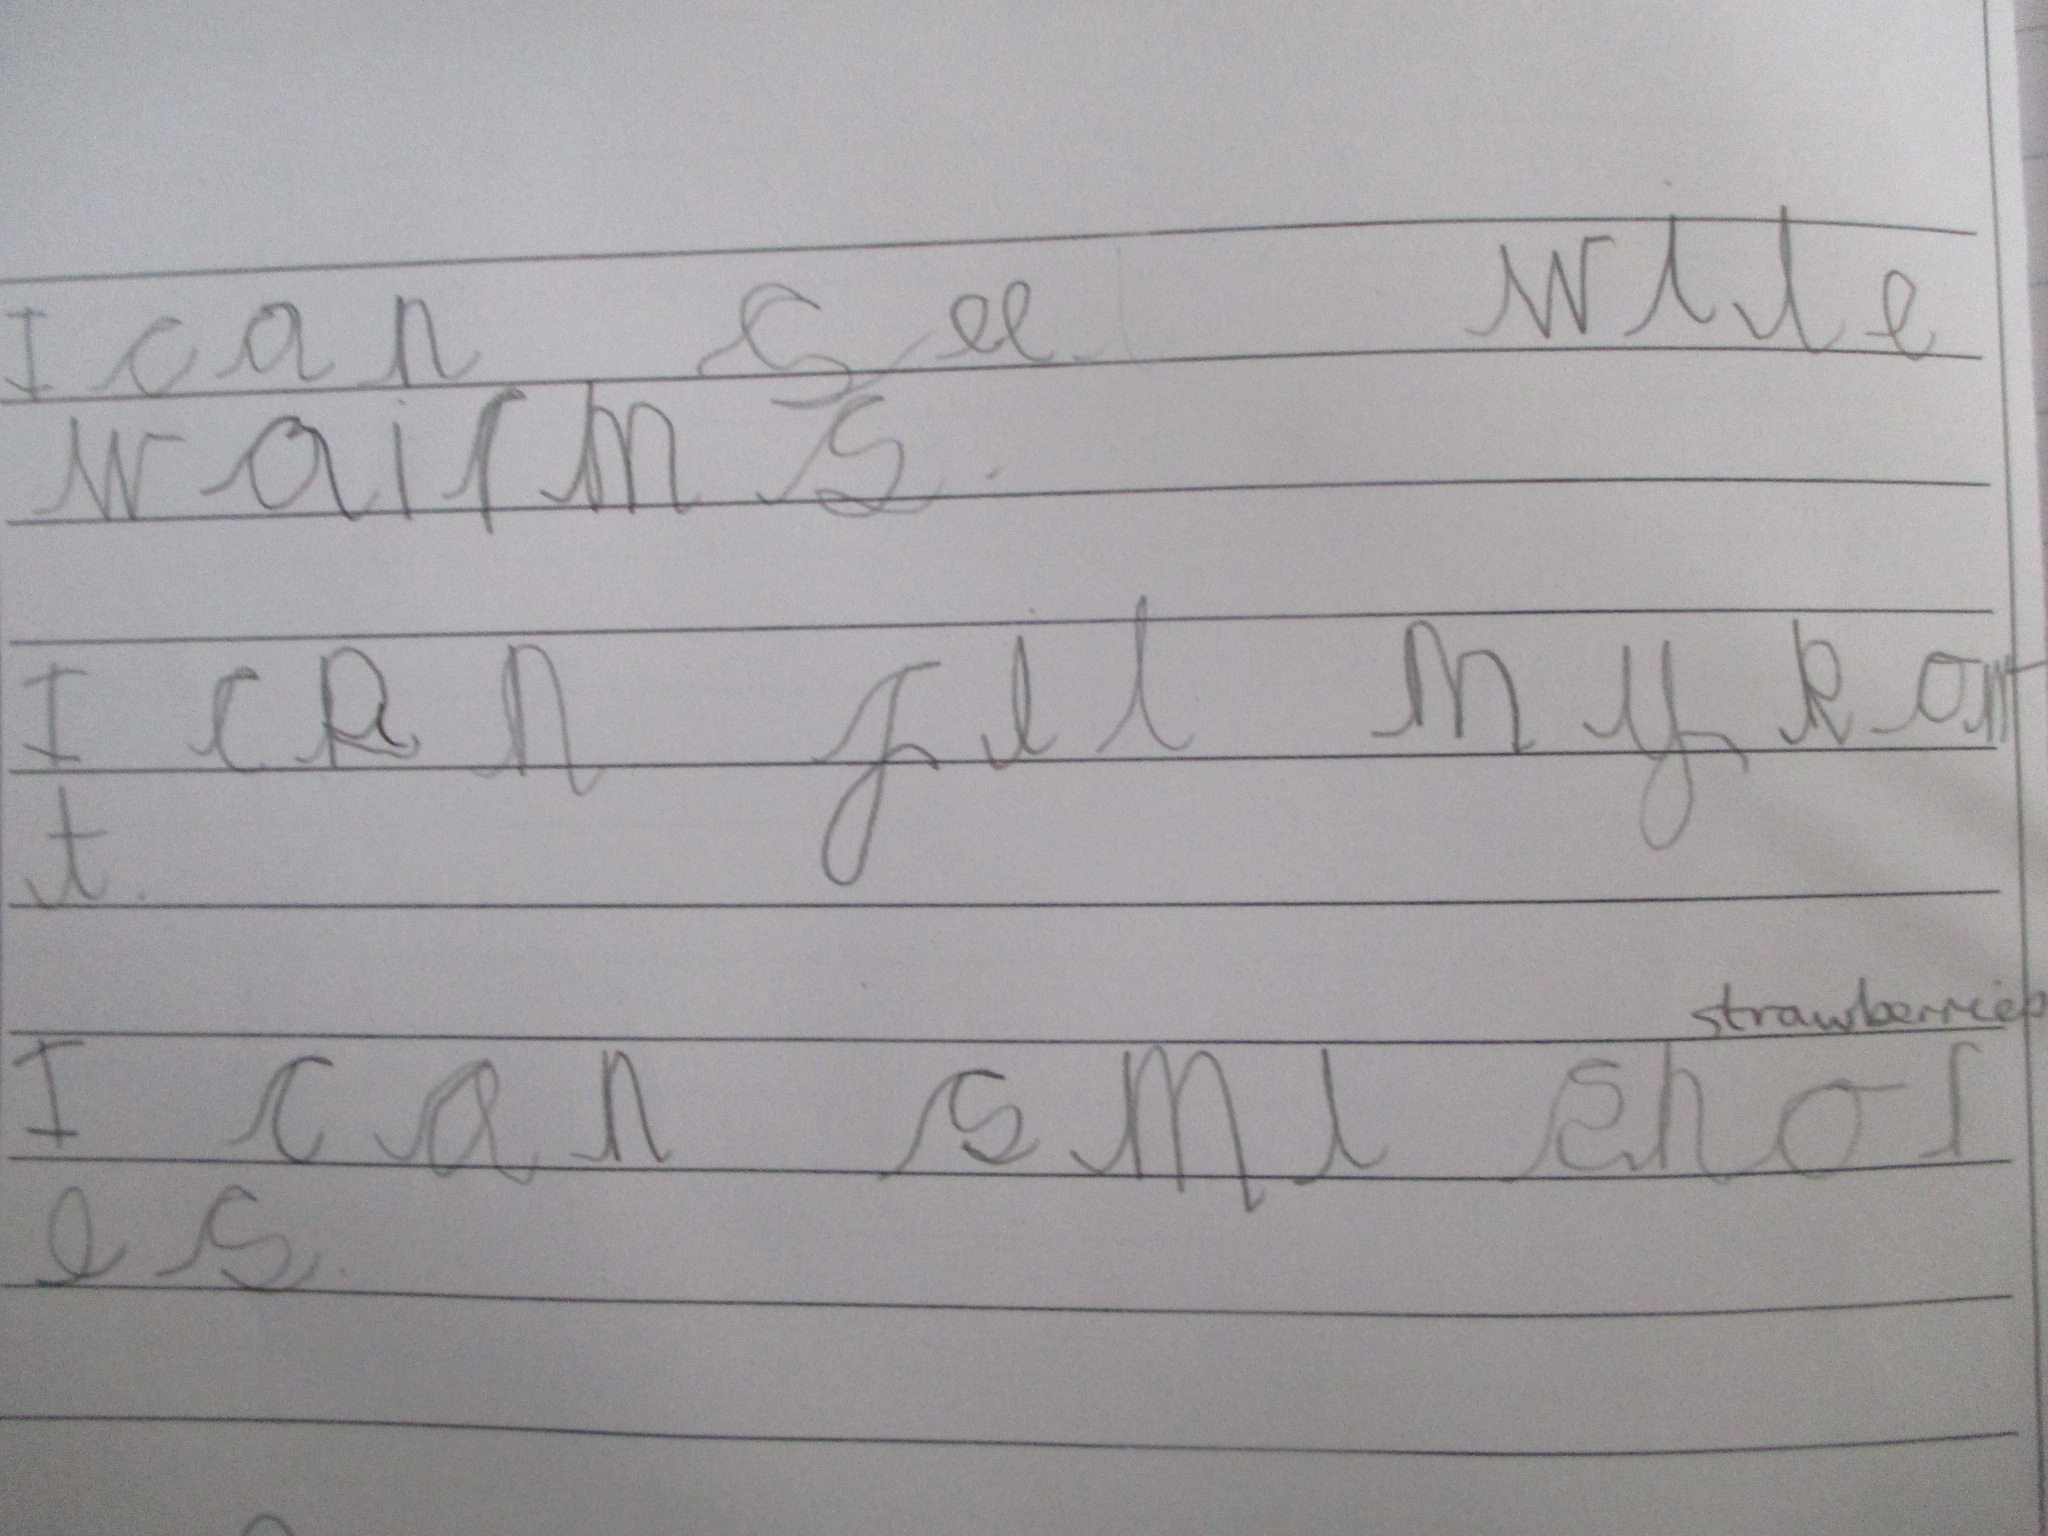 I can see wile
wairms.
I can fil my kom
t.
strawberries
I can sml shor
es.